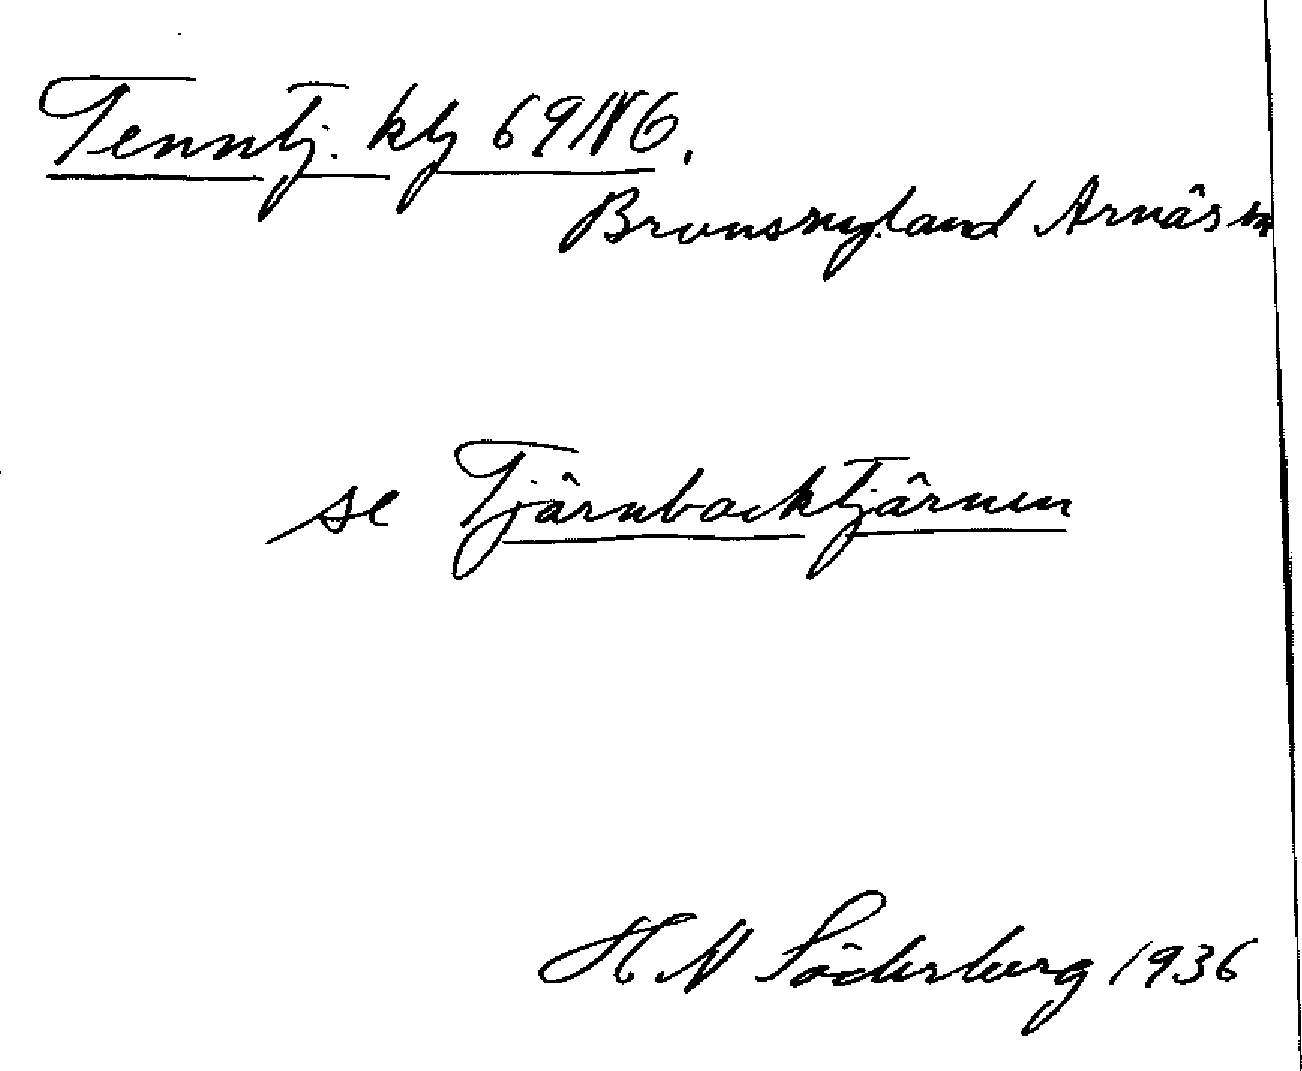 Tenntj. kbg 69 N 6.
Brunsnyland Arnäs sn
se Tjärnbacktjärnen
H N Söderberg 1936